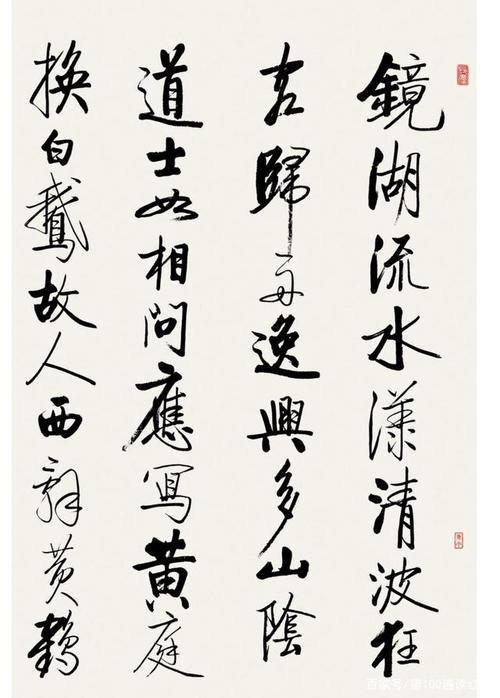 鏡湖流水漾清波狂
客歸舟逸興多山陰
道士如相問應寫黄庭
換白鵝故人西辭黄鶴
百家号/第100遍读